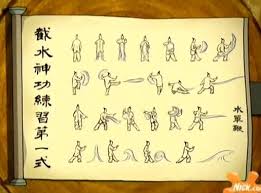 截水神功練習第一式
水單鞭
NICK.com